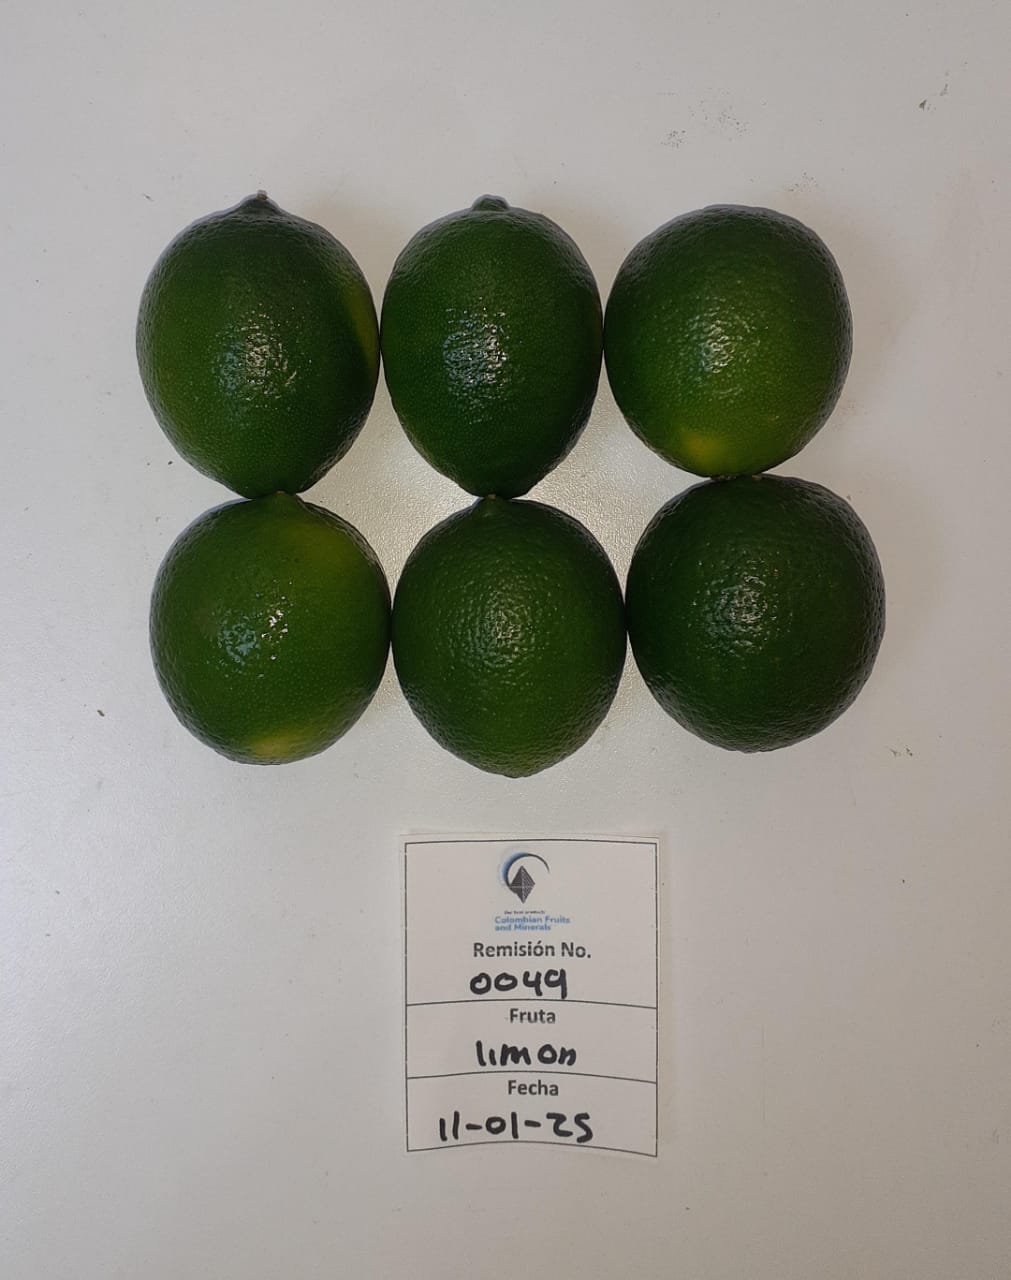 Our best products
Colombian Fruits
and Minerals
Remisión No.
0049
Fruta
limon
Fecha
11-01-25